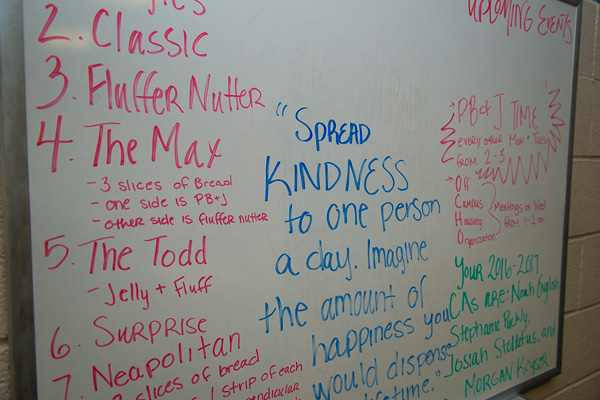 2. Classic
3. Fluffer Nutter
4. The Max
- 3 slices of Bread
- one side is PB+J
- other side is fluffer nutter
5. The Todd
- Jelly + Fluff
6. SURPRISE
7. Neapolitan
slices of bread
strip of each
"SPREAD
KINDNESS
to one person
a day. Imagine
the amount of
happiness you
would dispense
lifetime."
UPCOMING EVENTS
→ PB & J TIME
every other Mon + Tues
from 2-3
→ Off
Campus
Housing
Organization
Meetings on Wed
from 1-2
Your 2016-2017
CAs are: Noah English
Stephanie
Josiah Stoltzfus, and
MORGAN